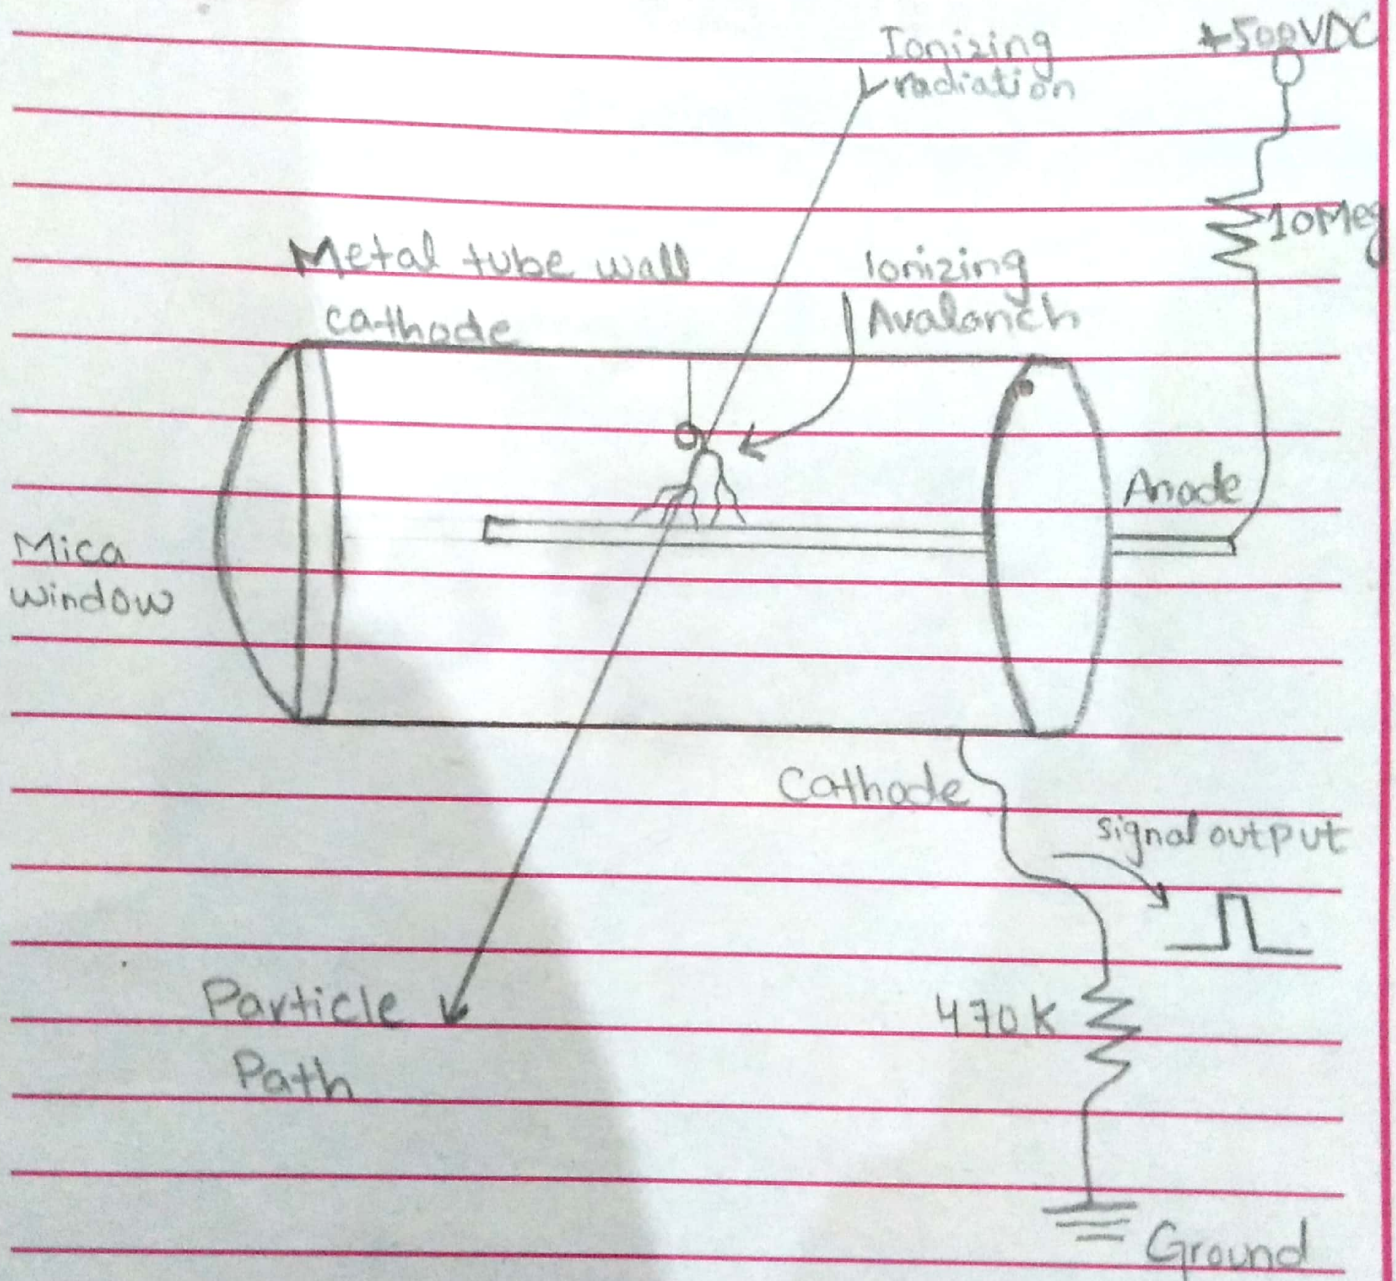 Ionizing
radiation
+500VDC
10Meg
Metal tube wall
cathode
Ionizing
Avalanch
Anode
Mica
window
Cathode
signal output
Particle
Path
470K
Ground